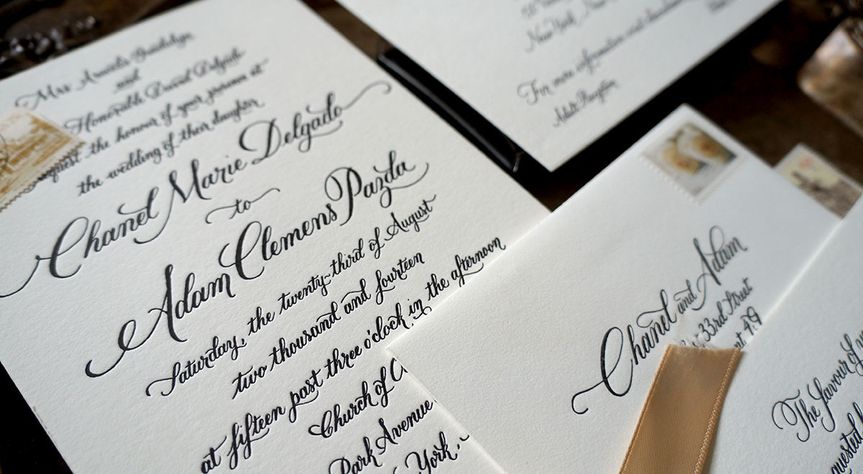 and
Honorable David Delgado
request the honour of your presence at
the wedding of their daughter
Chanel Marie Delgado
to
Adam Clemens Pazda
Saturday, the twenty-third of August
two thousand and fourteen
at fifteen past three o'clock in the afternoon
Church of
Park Avenue
York
New York, New
For more information and
Adult Reception
Chanel and Adam
33rd Street
The favour of